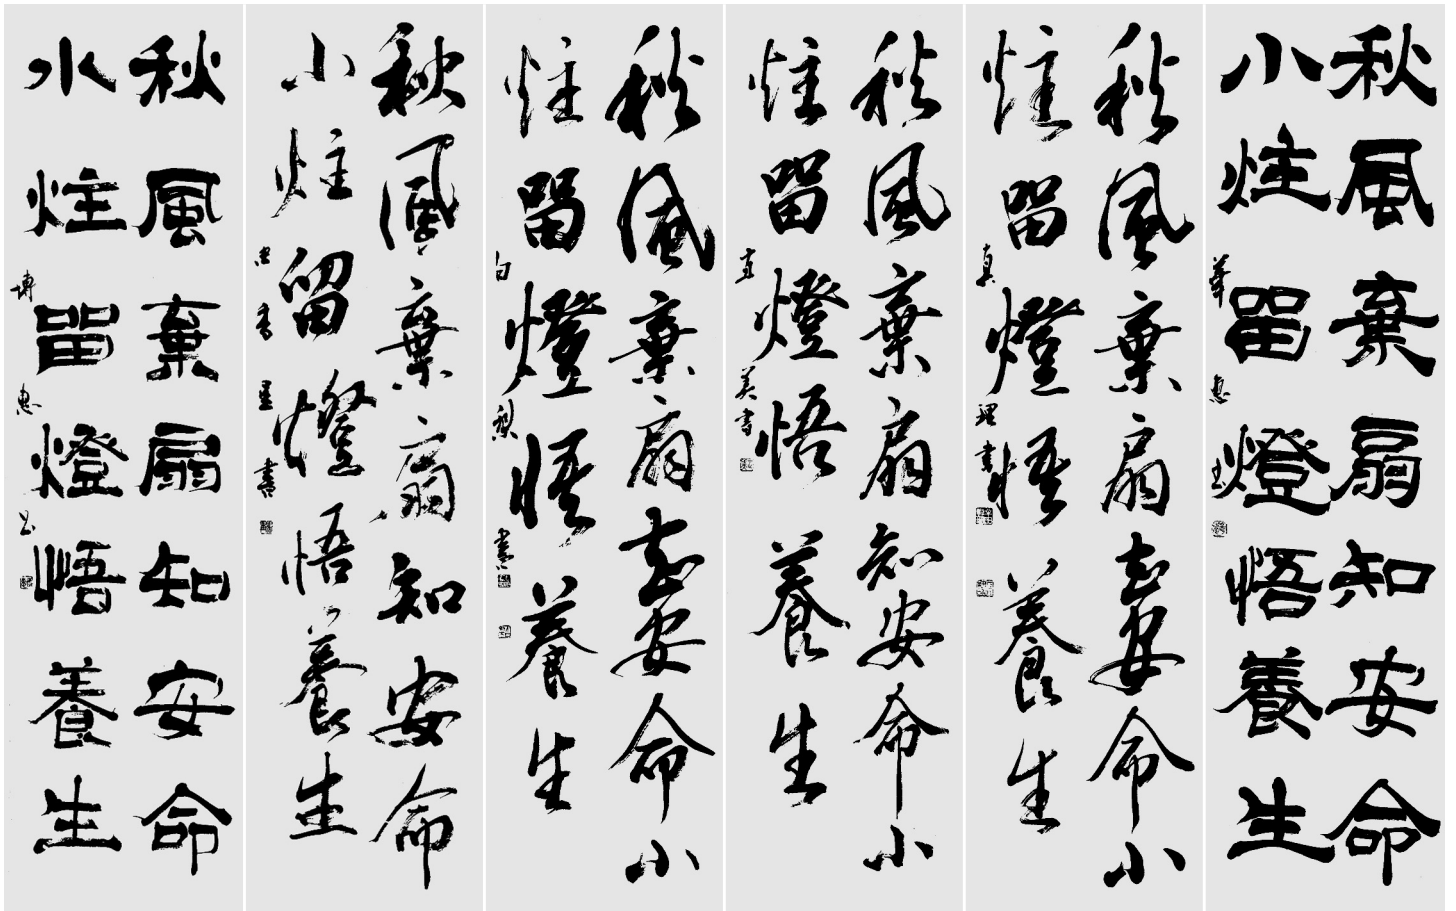 秋風棄扇知安命
小炷留燈悟養生
秋風棄扇知安命小
炷留燈悟養生
真理書
秋風棄扇知安命小
炷留燈悟養生
直美書
秋風棄扇知安命小
炷留燈悟養生
白梨書
秋風棄扇知安命
小炷留燈悟養生
書
秋風棄扇知安命
水炷留燈悟養生
博惠书